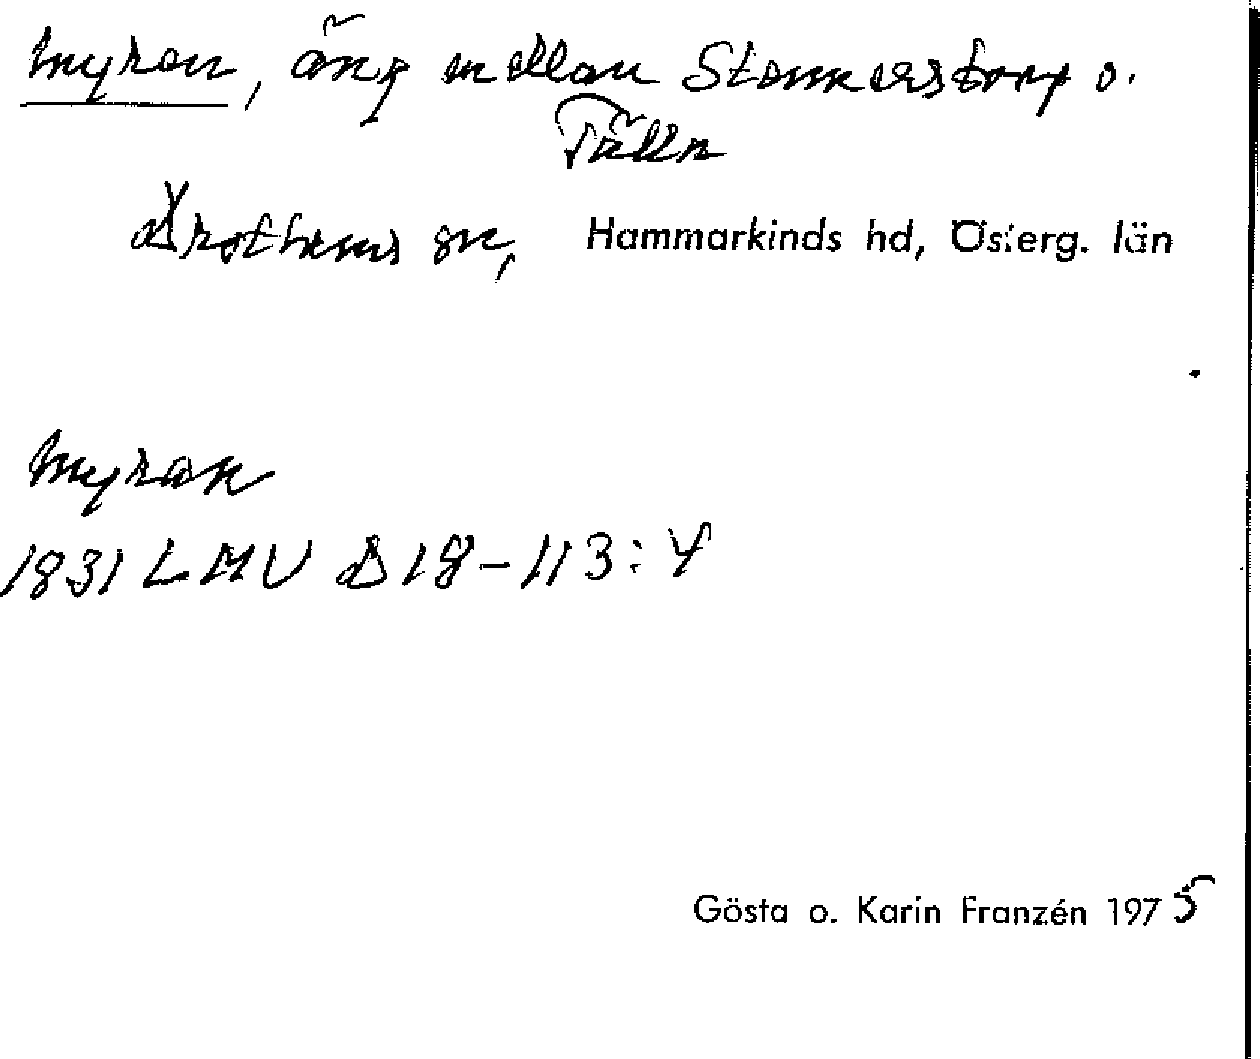 Myran, äng mellan Stannerstorp o.
Fälla
Drothems sn, Hammarkinds hd, Österg. län
Myran
1831 LMV D 18-113:4
Gösta o. Karin Franzén 1975